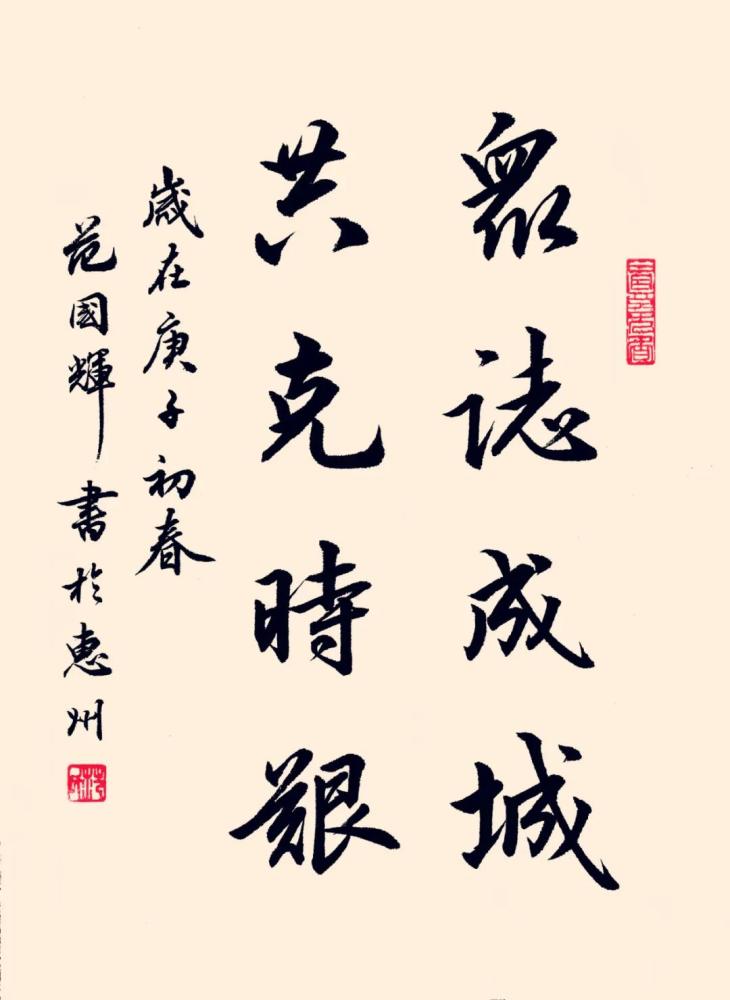 眾誌成城
共克時艱
歲在庚子初春
范國輝書於惠州